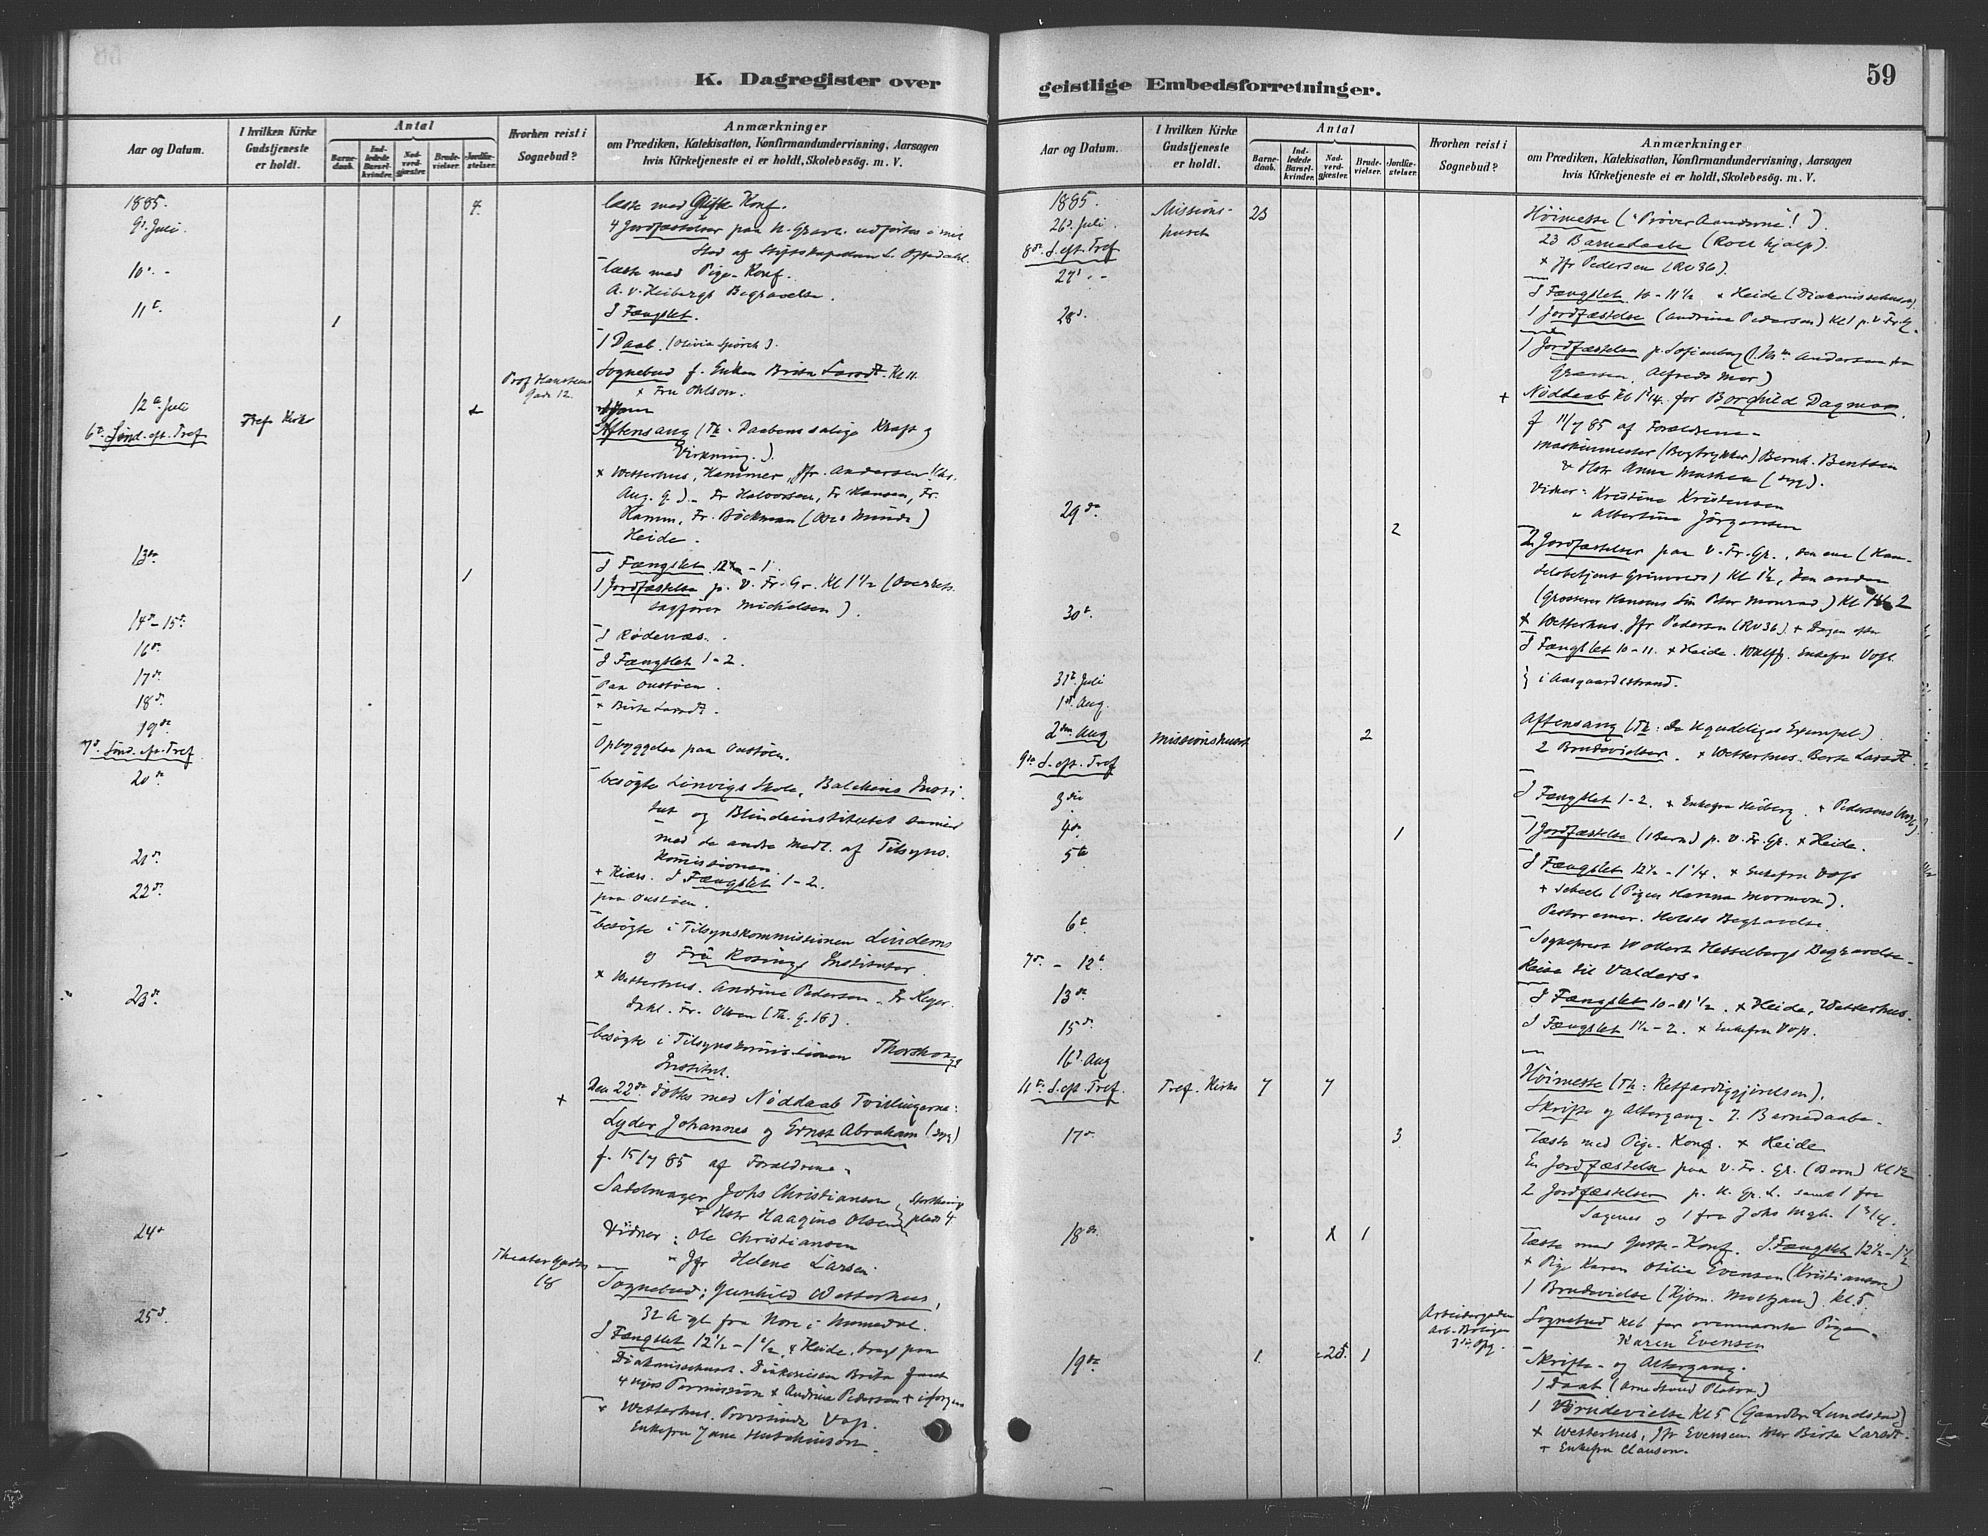 K. Dagregister over
Aar og Datum.
I hvilken Kirke Gudstjeneste er holdt.
Antal
Barne-daab.
Ind-ledede Barsel-kvinder.
Nad-verd-gjæster.
Brude-vielser.
Jordfæ-stelser.
Hvorhen reist i Sognebud?
Anmærkninger
om Prædiken, Katekisation, Konfirmandundervisning, Aarsagen
hvis Kirketjeneste ei er holdt, Skolebesög. m. V.
1885.
4.
læste med Gutte Konf.
9d. Juli.
4 Jordfæstelser paa udførtes i mit
Sted af Stiftskapellan L. Oftedahl.
10. -
læste med Pige-Konf.
A. v. Heibergs Begravelse.
11t.
I Fængslet.
1
1 Daab. (Olivia
Sognebud f. Enken Kl 11.
Prof Hansteens
Gade 12.
x Fru Ohlson.
12te Juli
6t. Sønd. eft. Tref
Tref. Kirke
Aftensang (Th. Daabens salige Kraft og
Virkning.).
x Wetterhus, Hammer, Jfr. Andersen
Fr Halvorsen, Fr Hansen, Fr.
Hamm, Fr. Böckman
Heide.
13de
I Fængslet 12½ - 1.
1
1 Jordfæstelse p. V. Fr. Gr. Kl 1½ (Overrets
sagfører Michelsen).
14d - 15d.
I Rödenæs.
16d.
I Fængslet 1-2.
17d.
Paa Oustøen.
18d.
19de
7d. Sönd. eft. Tref
Opbyggelse paa Oustöen.
20de
besögte Linvigs Skole, Balchens Insti-
tut og Blindeinstitutet
med de andre Medl. af Tilsyns-
kommissionen.
21d.
I Fængslet 1-2.
22d.
paa Oustöen.
besögte i Tilsynskommissionen Linderns
og Frk Rosings Instituter.
x Wetterhus. Andrine Pedersen. Fr Meyer
Fr. Olsen (Th. G. 18).
23d.
besögte i Tilsynskommissionen
Institut.
+ Den 22de døbtes med Nöddaab Tvillingerne:
Lyder Johannes og Ernst Abraham (syg)
f. 15/7 85 af Forældrene
Sadelmager Johs Christiansen
& Hstr Haagine Olsen
Vidner: Ole Christiansen
" Jfr Helene Larsen
24
Theatergaden
18
Sognebud: Gunhild Wetterhus,
32 A. gl. fra Nore i Numedal.
25d.
I Fængslet 12½ - 1½, x Heide, besøg paa
Diakonissehuset. Diakonissen Brita
4 Permission x Andrine Pedersen
x Wetterhus.
Enkefru Jane Hutchinson.
geistlige Embedsforretninger.
59
Aar og Datum.
I hvilken Kirke Gudstjeneste er holdt.
Antal
Barne-daab.
Ind-ledede Barsel-kvinder.
Nad-verd-gjæster.
Brude-vielser.
Jordfæ-stelser.
Hvorhen reist i Sognebud?
Anmærkninger
om Prædiken, Katekisation, Konfirmandundervisning, Aarsagen
hvis Kirketjeneste ei er holdt, Skolebesög. m. V.
1885.
26d. Juli
8de S. eft. Tref
Missions-
huset
23
Höimesse ("Prøver Aanderne!").
23 Barnedaabe (Roll hjalp).
x Jfr Pedersen (RV36).
27d. -
I Fængslet 10-11½ x Heide (Diakonissehuset)
28d.
1 Jordfæstelse (Andrine Pedersen) Kl 1 p. V. Fr. G.
1 Jordfæstelse p. Sofienberg
Alfreds Mor)
+ Nöddaab Kl 1¼ for Borghild Dagmar,
f 11/7 85 af Forældrene
Maskinmester (Bogtrykker) Bernh. Bentsen
& Hstr Anna (syg).
Vidner: Kristine Kristensen
" Albertine Jörgensen
29de
2
2 Jordfæstelser paa V. Fr. Gr., den ene (Han-
delsbetjent Grimsrud) Kl 1½, den anden
(Grosserer Hansens Søn Peter Monrad) Kl 2
30t.
x Wetterhus. Jfr Pedersen (RV36).
I Fængslet 10-11. x Heide. Wulff. Enkefru Voss.
31t. Juli
1st. Aug.
} i Aasgaardsstrand.
2den Aug
9de S. eft. Tref
Missionshuset
2
Aftensang (Th: De Ugudeliges Exempel).
2 Brudevielser. x Wetterhus.
3die
I Fængslet 1-2. x Enkefru Heiberg. x Pedersens
4de
1
1 Jordfæstelse (1 Barn) p. V. Fr. Gr. x Heide.
5te
I Fængslet 12½ - 1¼. x Enkefru Voss
x Scheele (Pigen Hanna Mormon).
Pastor emer. Holsts Begravelse.
6te
Sogneprest Wollert Hesselbergs Begravelse.
7d. - 12t.
Reise til Valders.
13de
I Fængslet 10-11½. x Heide, Wetterhus.
15d.
I Fængslet 1½-2. x Enkefru Voss.
16d. Aug
11t. S. eft. Tref.
Tref. Kirke
7
7
Höimesse (Th: Retfærdiggjörelsen).
Skrifte og Altergang. 7 Barnedaabe.
17d.
3
læste med Pige-Konf. x Heide
En Jordfæstelse paa V. Fr. Gr. (Barn) Kl 12
2 Jordfæstelser p. samt 1 fra
Sagenes og 1 fra Johs Mgh. 1¾.
18de
1
læste med Gutte-Konf. I Fængslet 12½-1½
x Pige Karen Otilia Evensen (Kristiansen)
1 Brudevielse (Kjøbm. Moltzau) Kl 5.
Arbeidergaden
Arb. Boliger
3die Opg.
Sognebud Kl 6 for ovennævnte Pige
Karen Evensen
19de
1.
25.
1
Skrifte- og Altergang.
1 Daab
1 Brudevielse Kl 5 (Gaardbr Lundstad)
x Wetterhus, Jfr Evensen
x Enkefru Clauson.